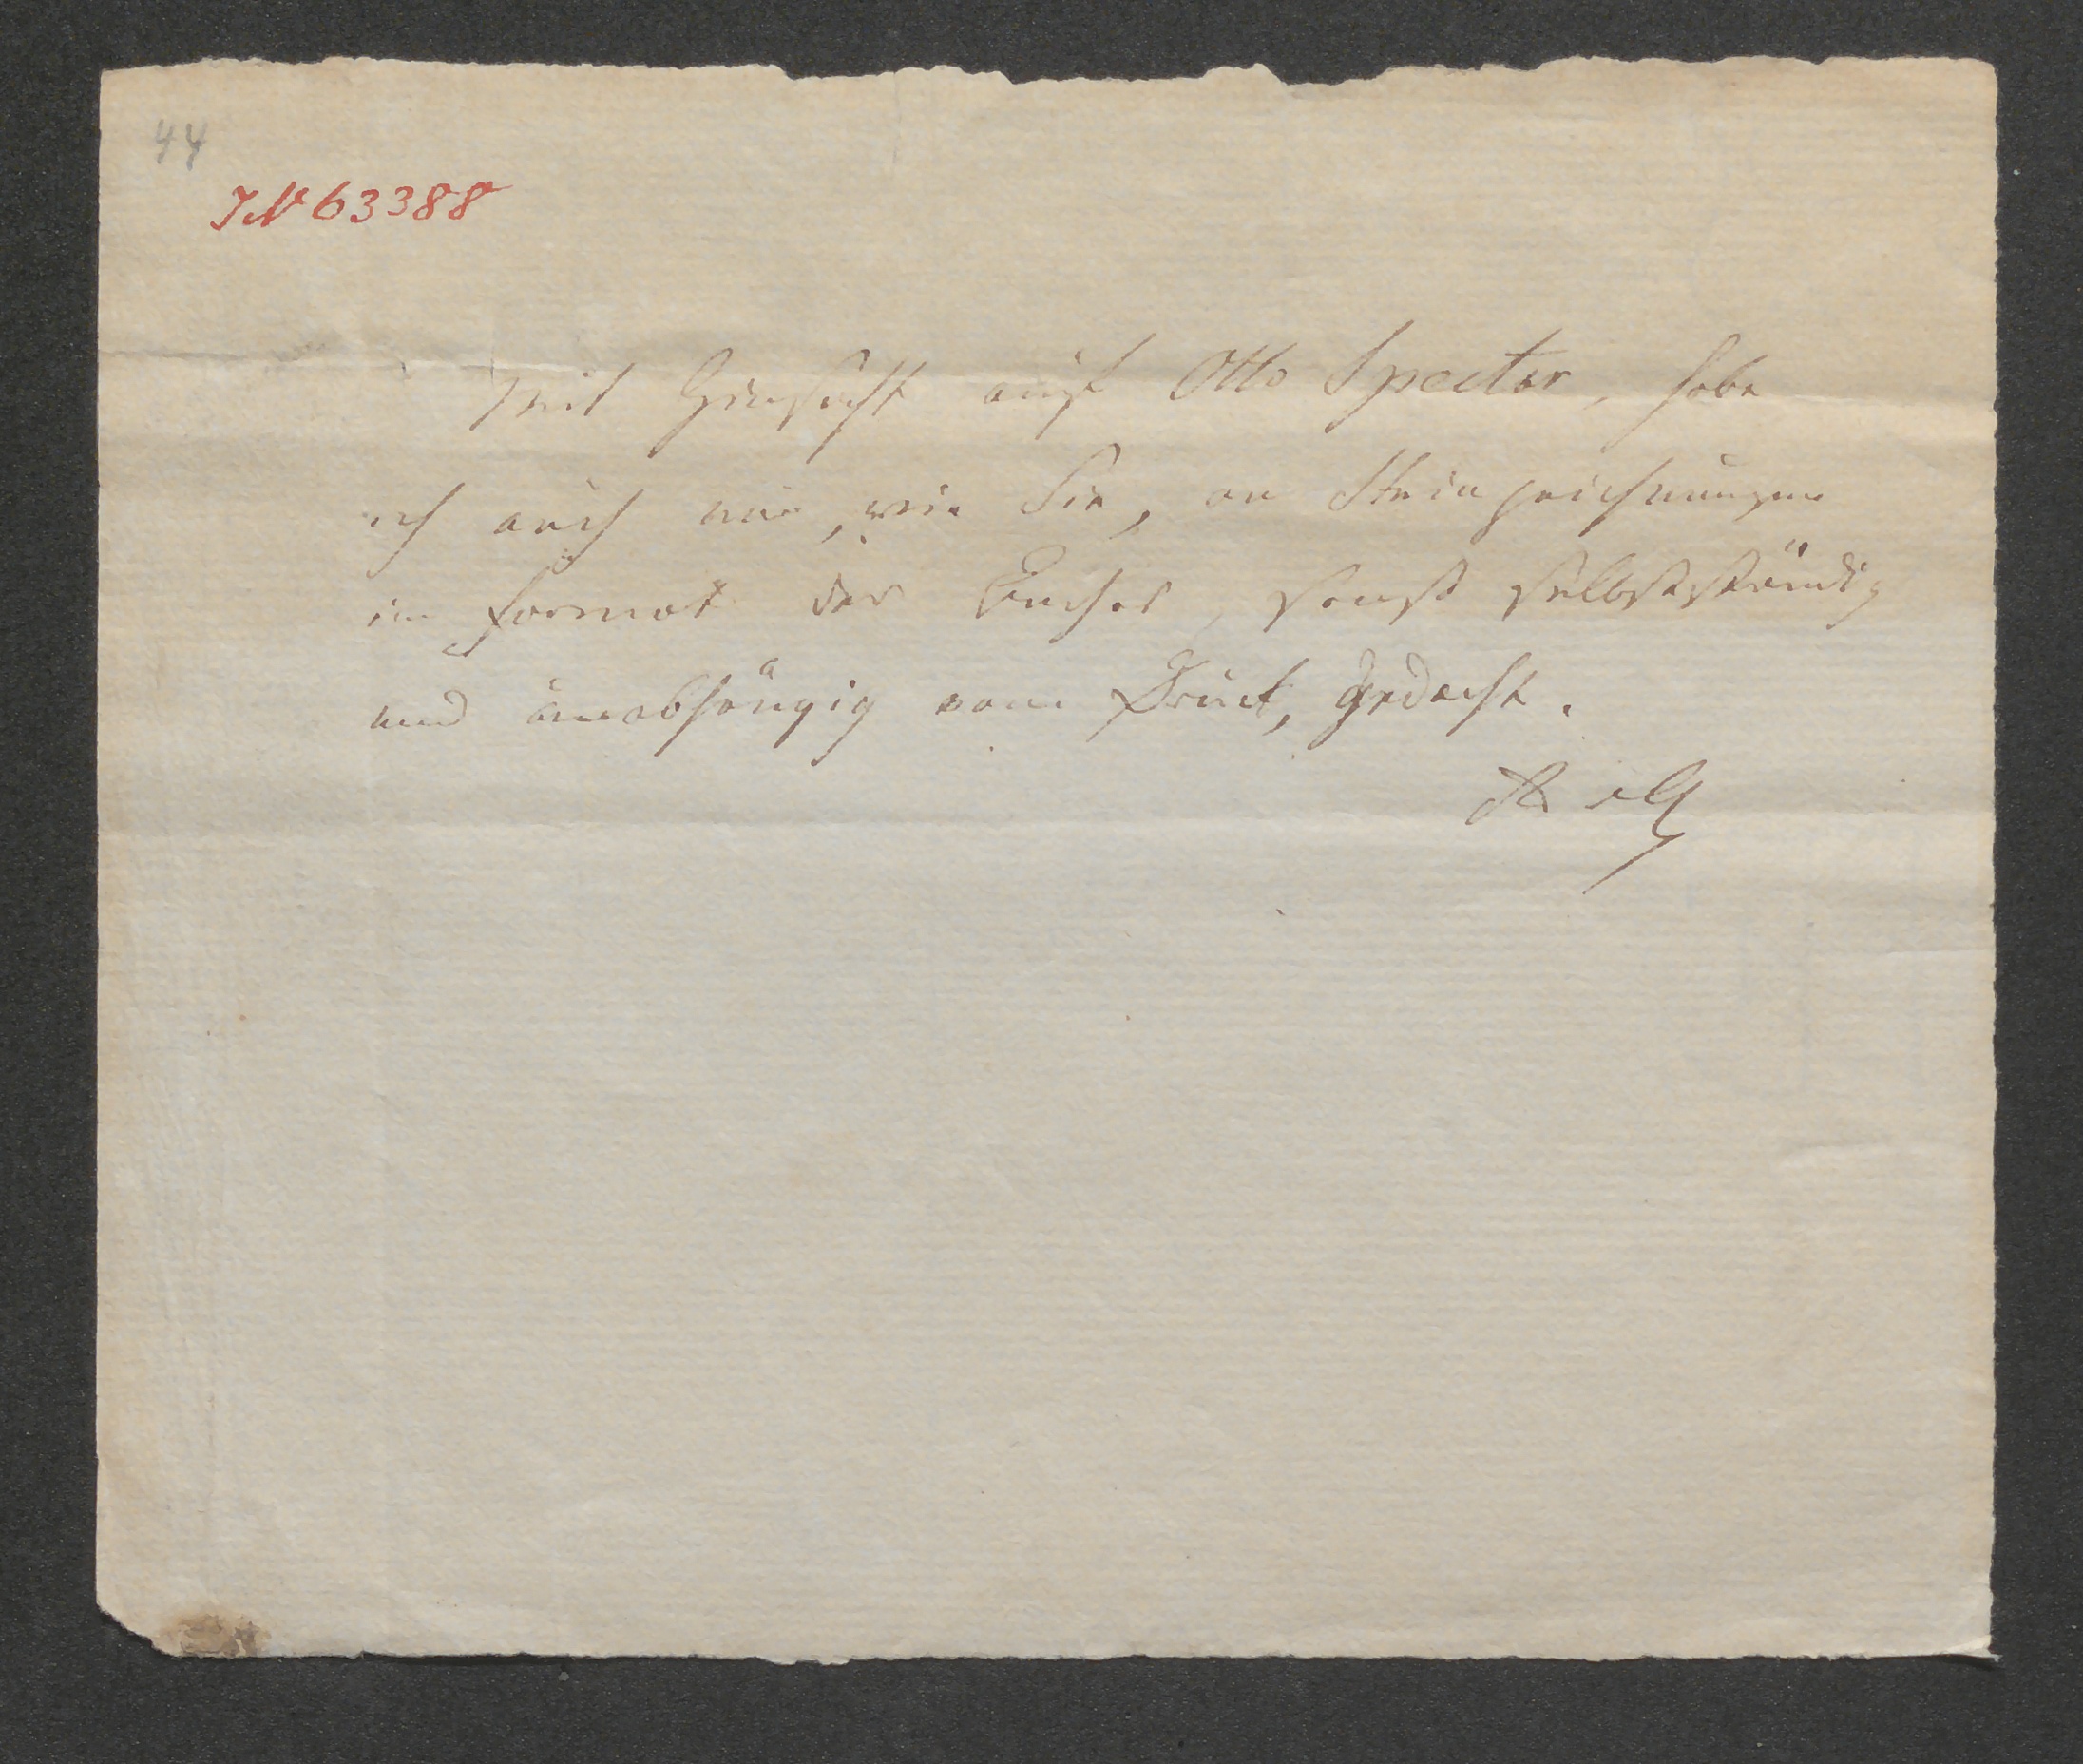 44
JN 63388
Mit Hinsicht auf Otto Specter, habe
ich auch nur, wie Sie, an Steinzeichnungen
im Format des Buches, sonst selbstständig
und unabhängig vom Druck, gedacht.